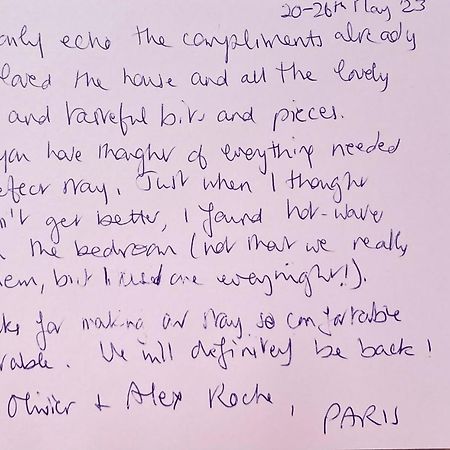 20-26th May '23
only echo the compliments already
loved the house and all the lovely
and tasteful bits and pieces.
you have thought of everything needed
erfect stay. Just when I thought
n't get better, I found hot-wave
the bedroom (not that we really
hem, but I used one every night!).
ks for making our stay so comfortable
rable. We will definitely be back!
Olivier + Alex Roche, PARIS